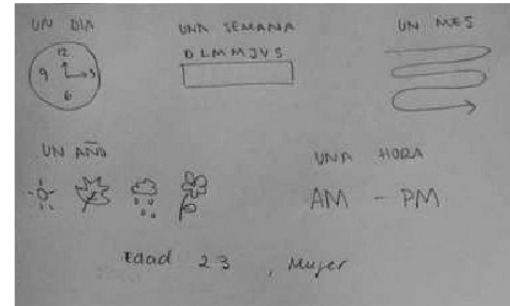 UN DIA
12
9 3
6
UNA SEMANA
D L M M J V S
UN MES
UN AÑO
UNA HORA
AM - PM
Edad 23, Mujer